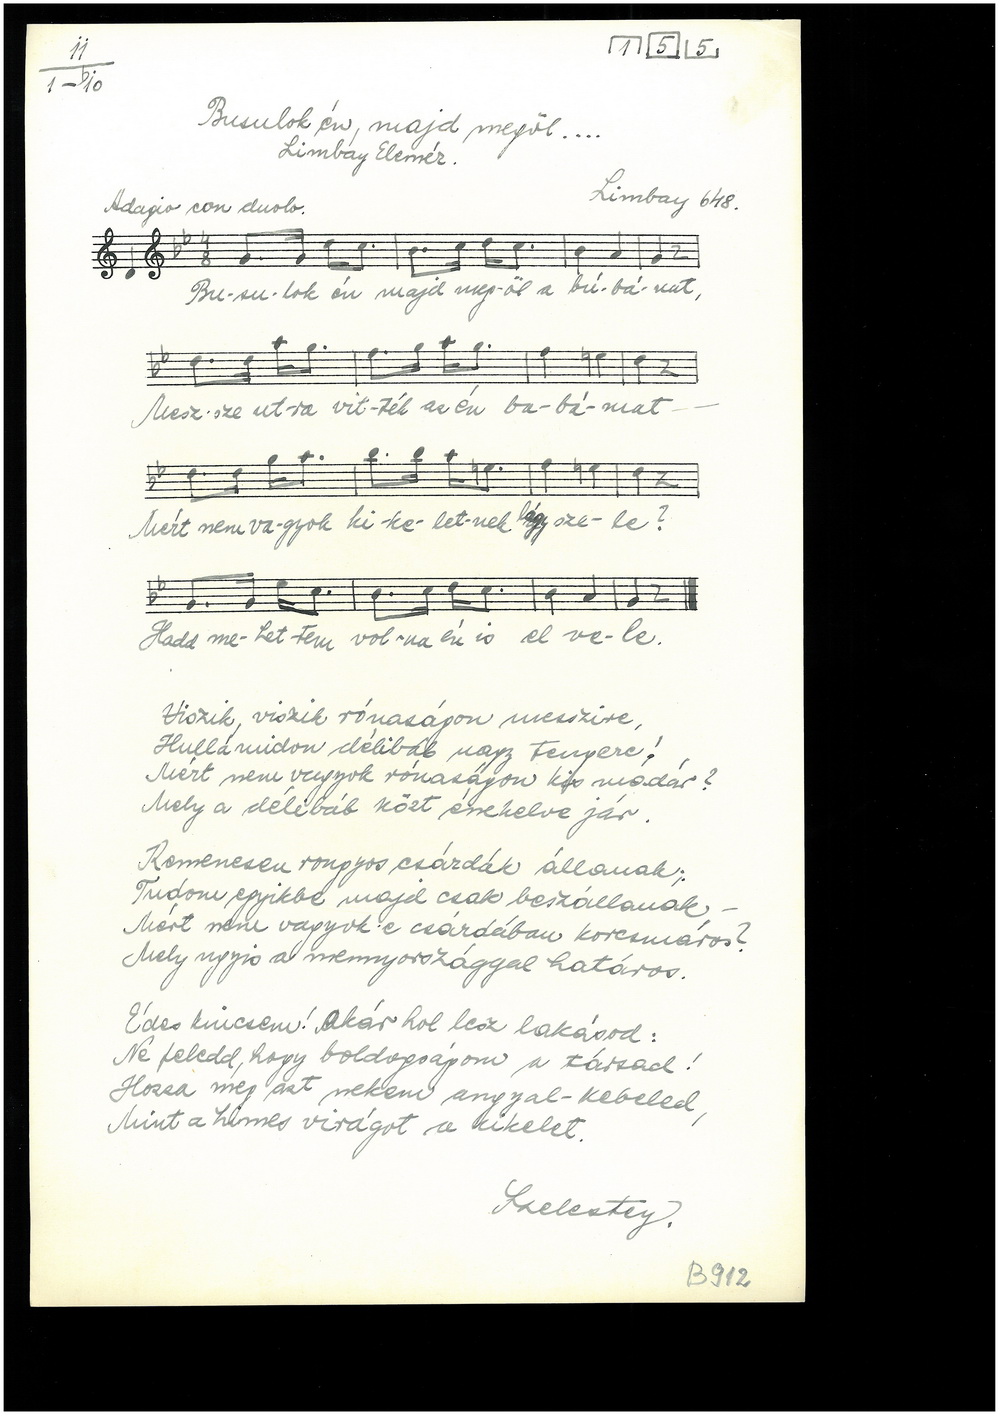 11
1-10
1 5 5
Busulok én, majd megöl....
Limbay Elemér.
Limbay 648.
Adagio con duolo.
4
8
Bu-su-lok én majd meg-öl a bú-bá-nat,
Mesz-sze ut-ra vit-ték az én ba-bá-mat --
Mért nem va-gyok ki-ke-let-nek lágy sze-le?
Hadd me-het-tem vol-na én is el ve-le.
Viszik, viszik rónaságon messzire,
Hullámidon délibáb nagy tengere!
Mért nem vagyok rónaságon kis madár?
Mely a délibáb közt énekelve jár.
Kemencsen rongyos csárdák állanak;
Tudom egyikbe majd csak beszállanak –
Mért nem vagyok e csárdában korcsmáros?
Mely ugyis a mennyországgal határos.
Édes kincsem! Akár hol lesz lakásod:
Ne feledd, hogy boldogságom a társad!
Hozza meg azt nekem angyal-kebeled,
Mint a himes virágot a kikelet.
Szelestey.
B912